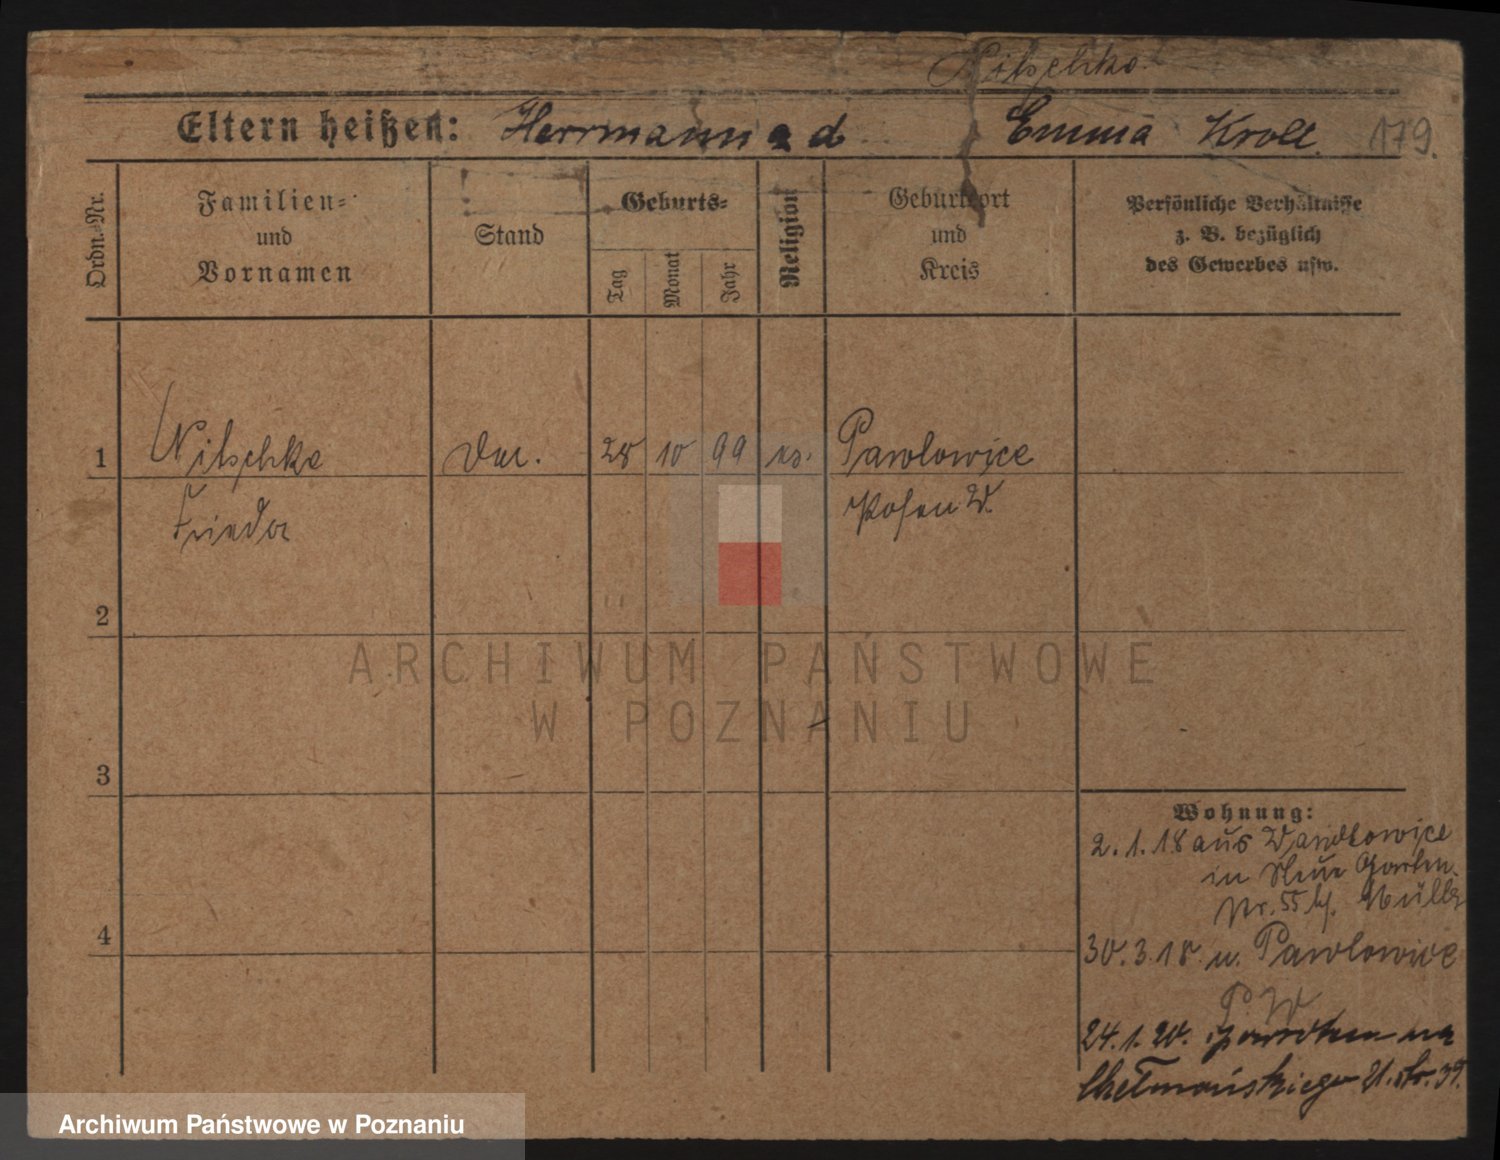 Nitschke
Eltern heißen: Herrmann u d Emma Kroll 179.
Ordn.-Nr.
Familien-
und
Vornamen
Stand
Geburts-
Tag
Monat
Jahr
Religion
Geburtsort
und
Kreis
Persönliche Verhältnisse
z. B. bezüglich
des Gewerbes usw.
1 Nitschke 28 10 99 Pawlowice
Frieda Posen W.
2
ARCHIWUM PAŃSTWOWE
W POZNANIU
3
Wohnung:
2.1.18 aus
in Neue Garten-
Nr. 55 bf. Müller
4
30.3.18. n. Pawlowice
P. W
24.1.20. na
Chełmońskiego 21.
Archiwum Państwowe w Poznaniu